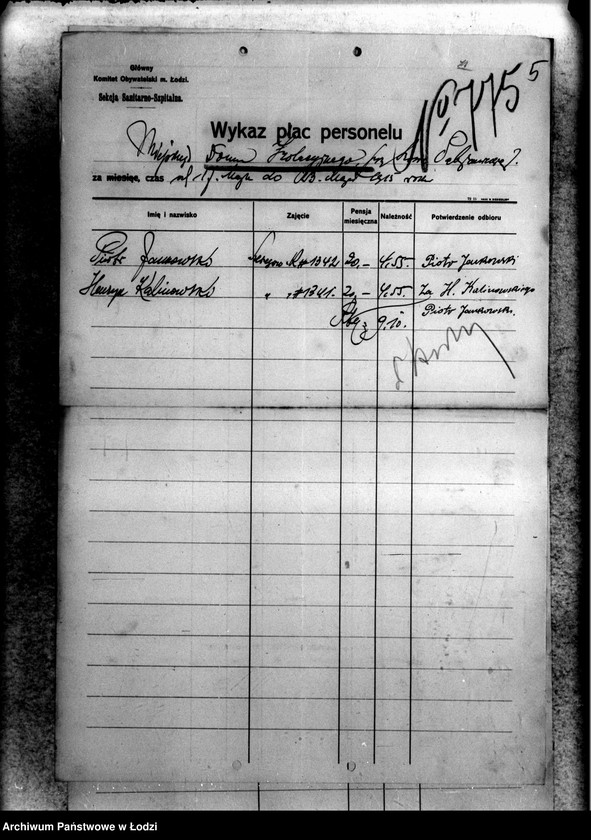 5
№ 775
Główny
Komitet Obywatelski m. Łodzi.
Sekcja Sanitarno-Szpitalna.
Wykaz płac personelu
Domu Izolacyjnego, przy
za miesiąc, czas od 17. Maja do 23. Maja 1915 roku
Imię i nazwisko Zajęcie Pensja miesięczna Należność Potwierdzenie odbioru
Piotr Jankowski № 1342 20,– 4.55. Piotr Jankowski
Henryk Kalinowski „ „ № 1341. 20,– 4.55. Za H. Kalinowskiego
9.10. Piotr Jankowski.
Archiwum Państwowe w Łodzi